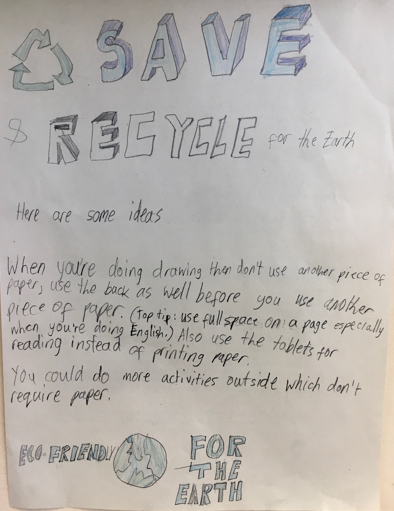 SAVE
& RECYCLE for the Earth
Here are some ideas
When you're doing drawing then don't use another piece of
paper, use the back as well before you use another
piece of paper. (Top tip: use full space on a page especially
when you're doing English.) Also use the tablets for
reading instead of printing paper.
You could do more activities outside which don't
require paper.
ECO-FRIENDLY
FOR
THE
EARTH